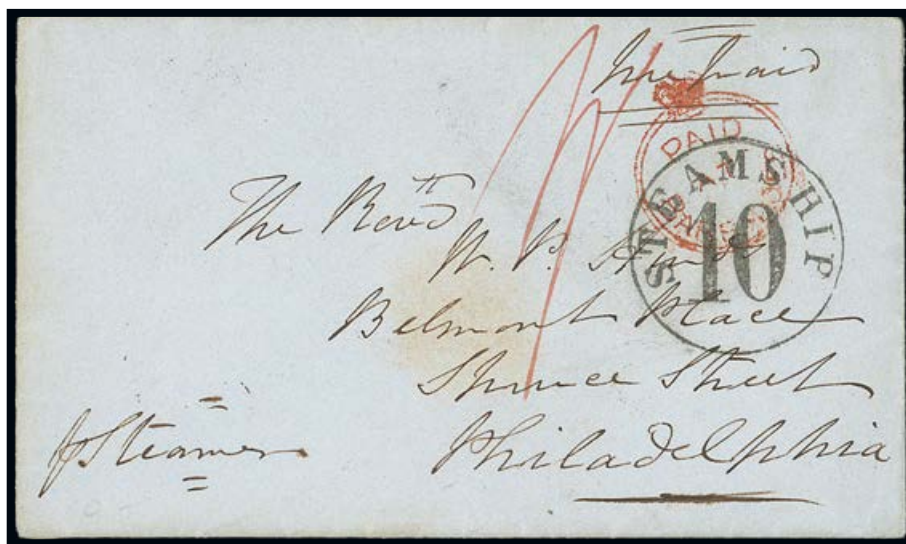 Pre Paid
PAID
STEAMSHIP
10
The Revd
W. P.
Belmont Place
Spruce Street
Philadelphia
p Steamer